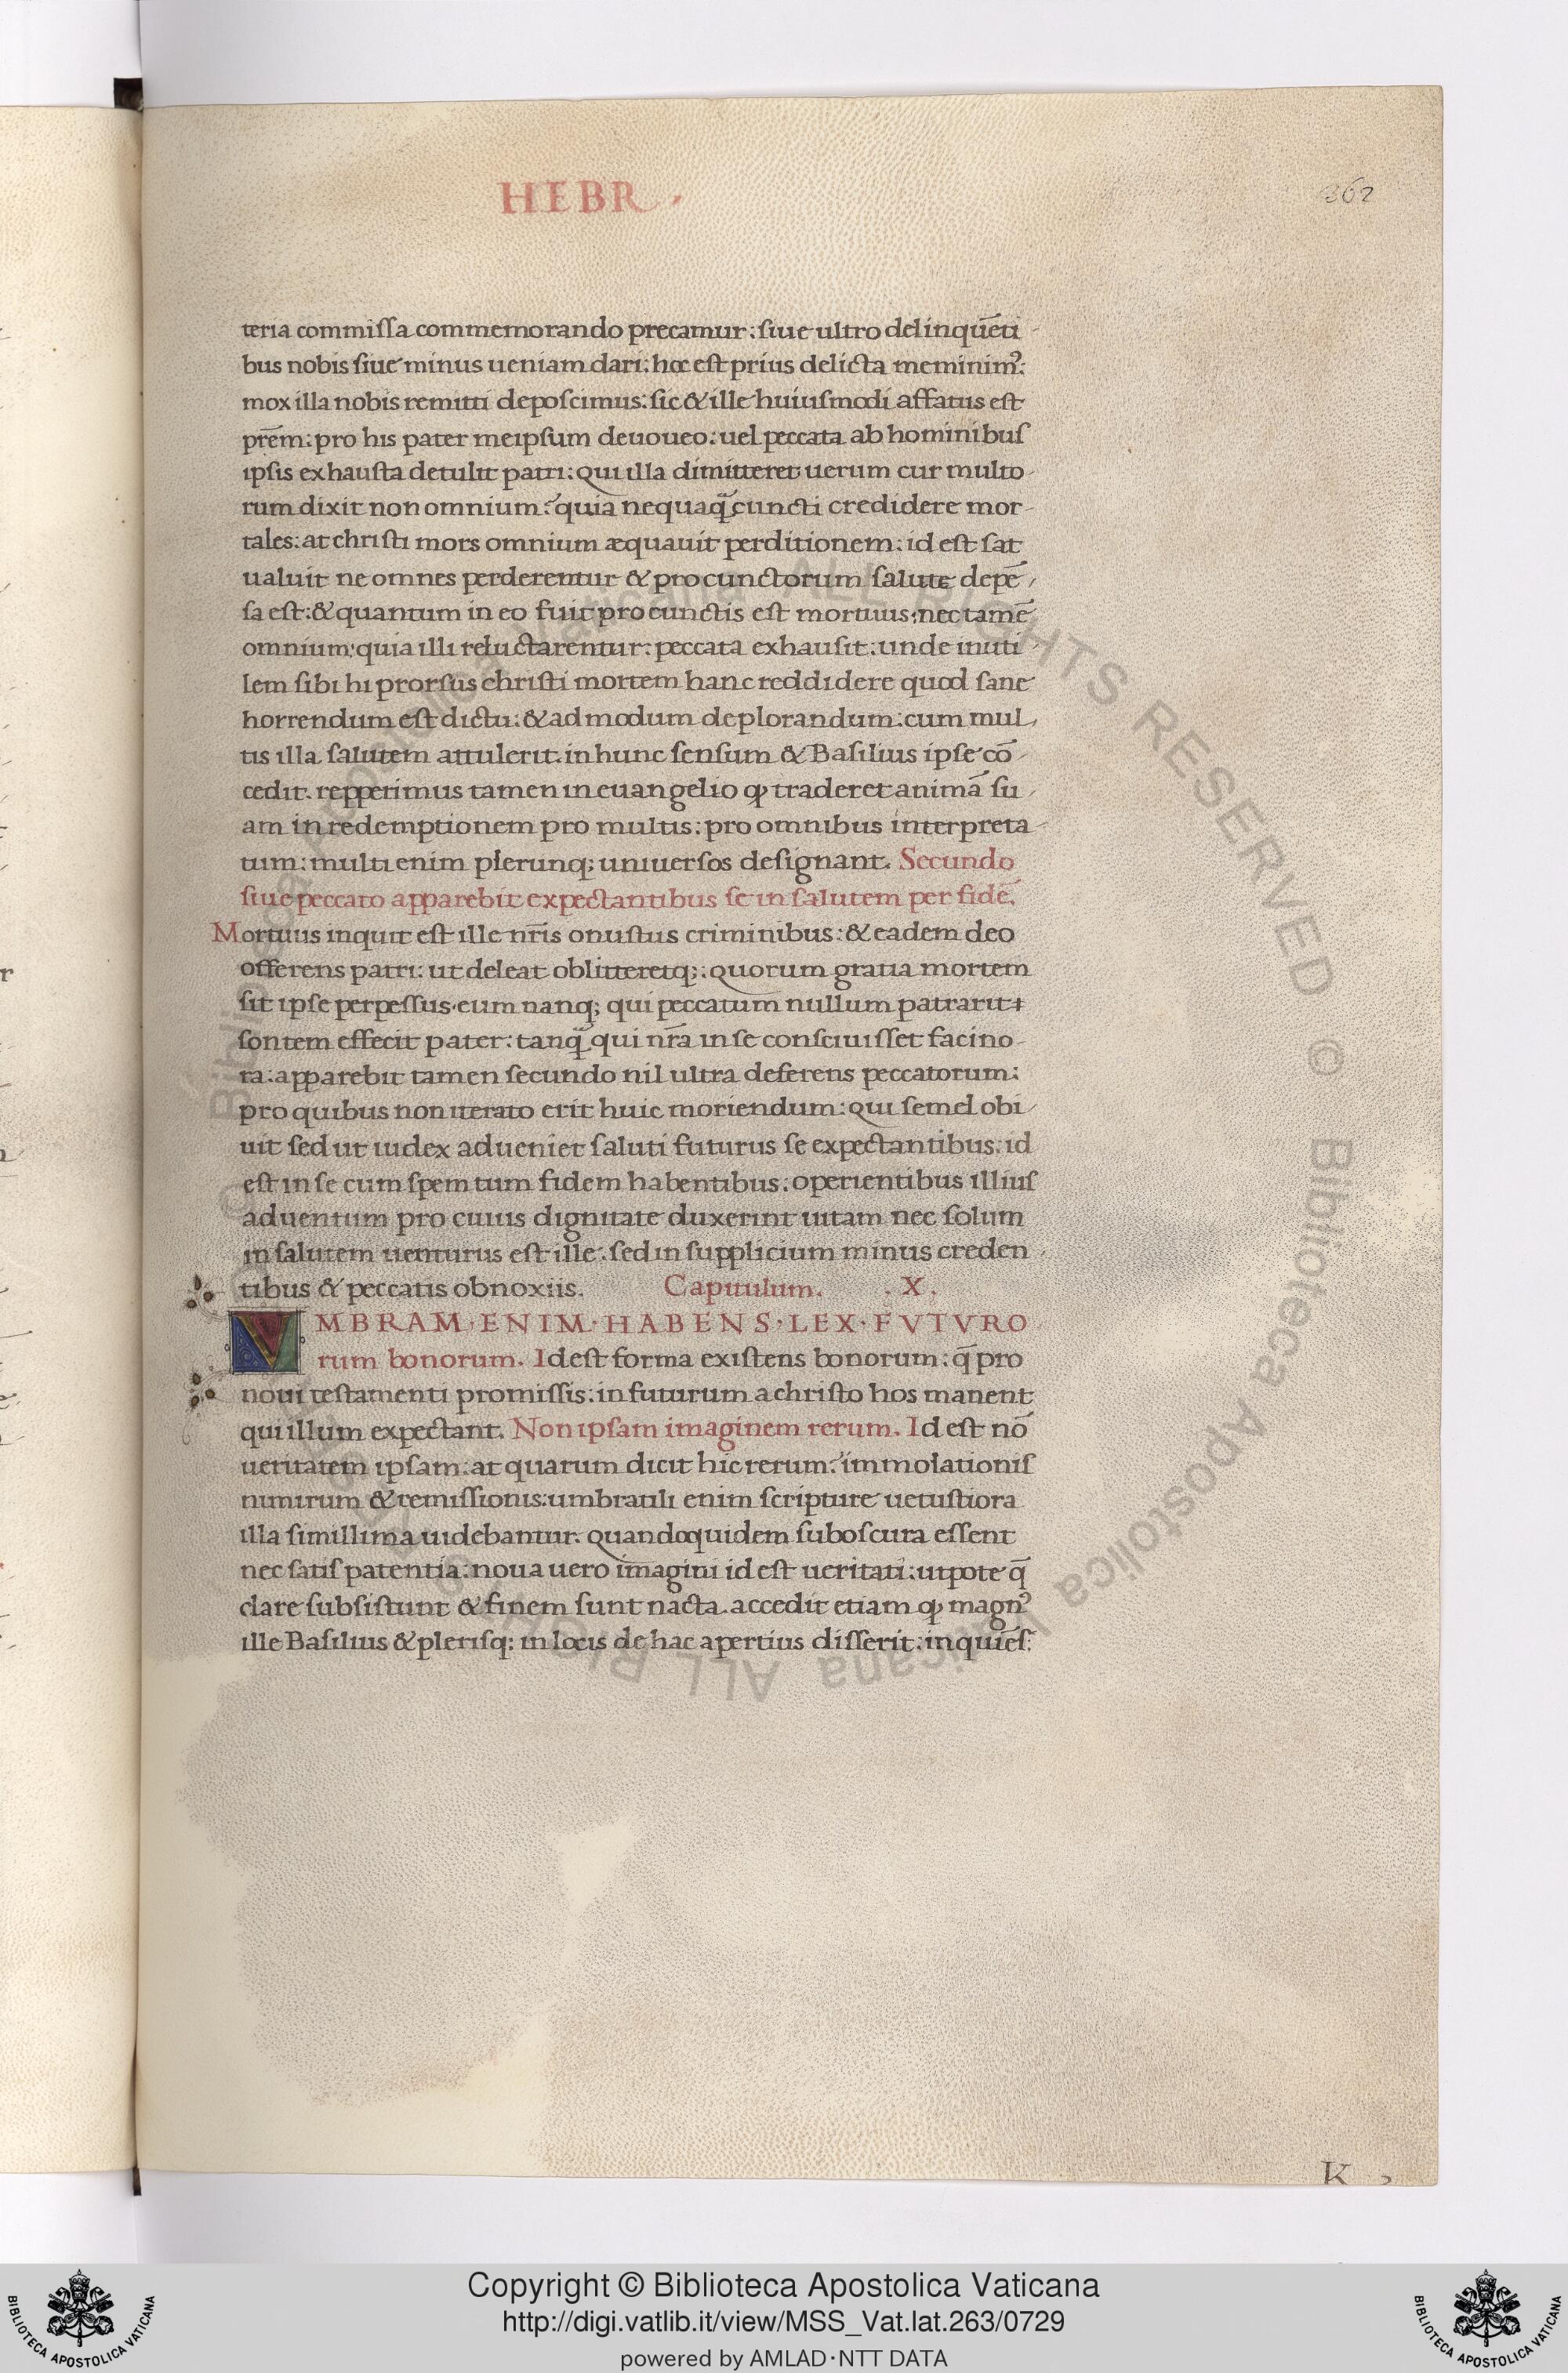 HEBR.
362
teria commissa commemorando precamur: siue ultro delinquẽti
bus nobis siue minus ueniam dari: hoc est prius delicta meminimꝰ:
mox illa nobis remitti deposcimus: sic & ille huiusmodi affatus est
prẽm: pro his pater meipsum deuoueo: uel peccata ab hominibus
ipsis exhausta detulit patri: qui illa dimitteret uerum cur multo
rum dixit non omnium? quia nequaq̃ cuncti credidere mor
tales: at christi mors omnium æquauit perditionem: id est sat
ualuit ne omnes perderentur & pro cunctorum salute depẽ
sa est: & quantum in eo fuit pro cunctis est mortuus: nec tamẽ
omnium: quia illi reluctarentur: peccata exhausit: unde inuti
lem sibi hi prorsus christi mortem hanc reddidere quod sane
horrendum est dictu: & admodum deplorandum: cum mul
tis illa salutem attulerit. in hunc sensum & Basilius ipse cõ
cedit. repperimus tamen in euangelio ꝙ traderet animã su
am in redemptionem pro multis: pro omnibus interpreta
tum: multi enim plerunq; uniuersos designant. Secundo
siue peccato apparebit expectantibus se in salutem per fidẽ.
Mortuus inquit est ille nr̃is onustus criminibus: & eadem deo
offerens patri: ut deleat oblitteretq;: quorum gratia mortem
sit ipse perpessus. eum nanq; qui peccatum nullum patrarit
sontem effecit pater: tanq̃ qui nr̃a in se consciuisset facino
ra: apparebit tamen secundo nil ultra deferens peccatorum:
pro quibus non iterato erit huic moriendum: qui semel obi
uit sed ut iudex adueniet saluti futurus se expectantibus: id
est in se cum spem tum fidem habentibus: operientibus illius
aduentum pro cuius dignitate duxerint uitam nec solum
in salutem uenturus est ille: sed in supplicium minus creden
tibus & peccatis obnoxiis. Capitulum. .X.
VMBRAM·ENIM·HABENS·LEX·FVTVRO
rum bonorum. Idest forma existens bonorum: q̃ pro
noui testamenti promissis: in futurum a christo hos manent
qui illum expectant. Non ipsam imaginem rerum. Id est nõ
ueritatem ipsam: at quarum dicit hic rerum? immolationis
nimirum & remissionis: umbratili enim scripture uetustiora
illa simillima uidebantur. quandoquidem suboscura essent
nec satis patentia: noua uero imagini id est ueritati: utpote q̃
clare subsistunt & finem sunt nacta. accedit etiam ꝙ magnꝰ
ille Basilius & plerisq: in locis de hac apertius disserit: inquiẽs:
K
Copyright © Biblioteca Apostolica Vaticana
http://digi.vatlib.it/view/MSS_Vat.lat.263/0729
powered by AMLAD·NTT DATA
BIBLIOTECA APOSTOLICA VATICANA
BIBLIOTECA APOSTOLICA VATICANA
© Biblioteca Apostolica Vaticana ALL RIGHTS RESERVED © Biblioteca Apostolica Vaticana ALL RIGHTS RESERVED